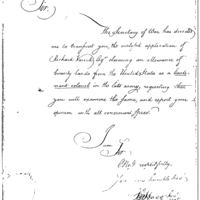 Sir,
The Secretary of War has directed
me to transmit you, the enclosed application of
Richard Esqr claiming an allowance of
bounty lands from the United States as a lieute-
nant colonel in the late army, requesting that
you will examine the same, and report your
opinion with all convenient speed.
I am
Sir
Most respectfully
Your humble Servt